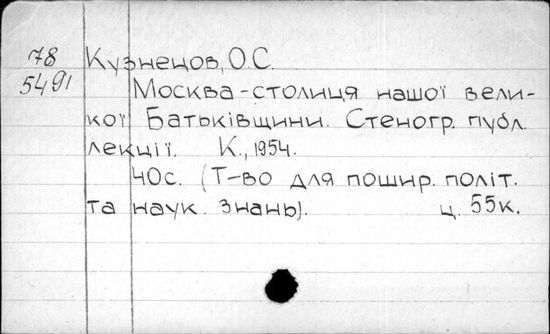 78 Кузнецов, О.С.
5491 Москва-столиця нашої вели-
кої Батьківщини. Стеногр. публ.
лекції. К., 1954.
40с. (Т-во для пошир. політ.
та наук. знань). ц. 55к.